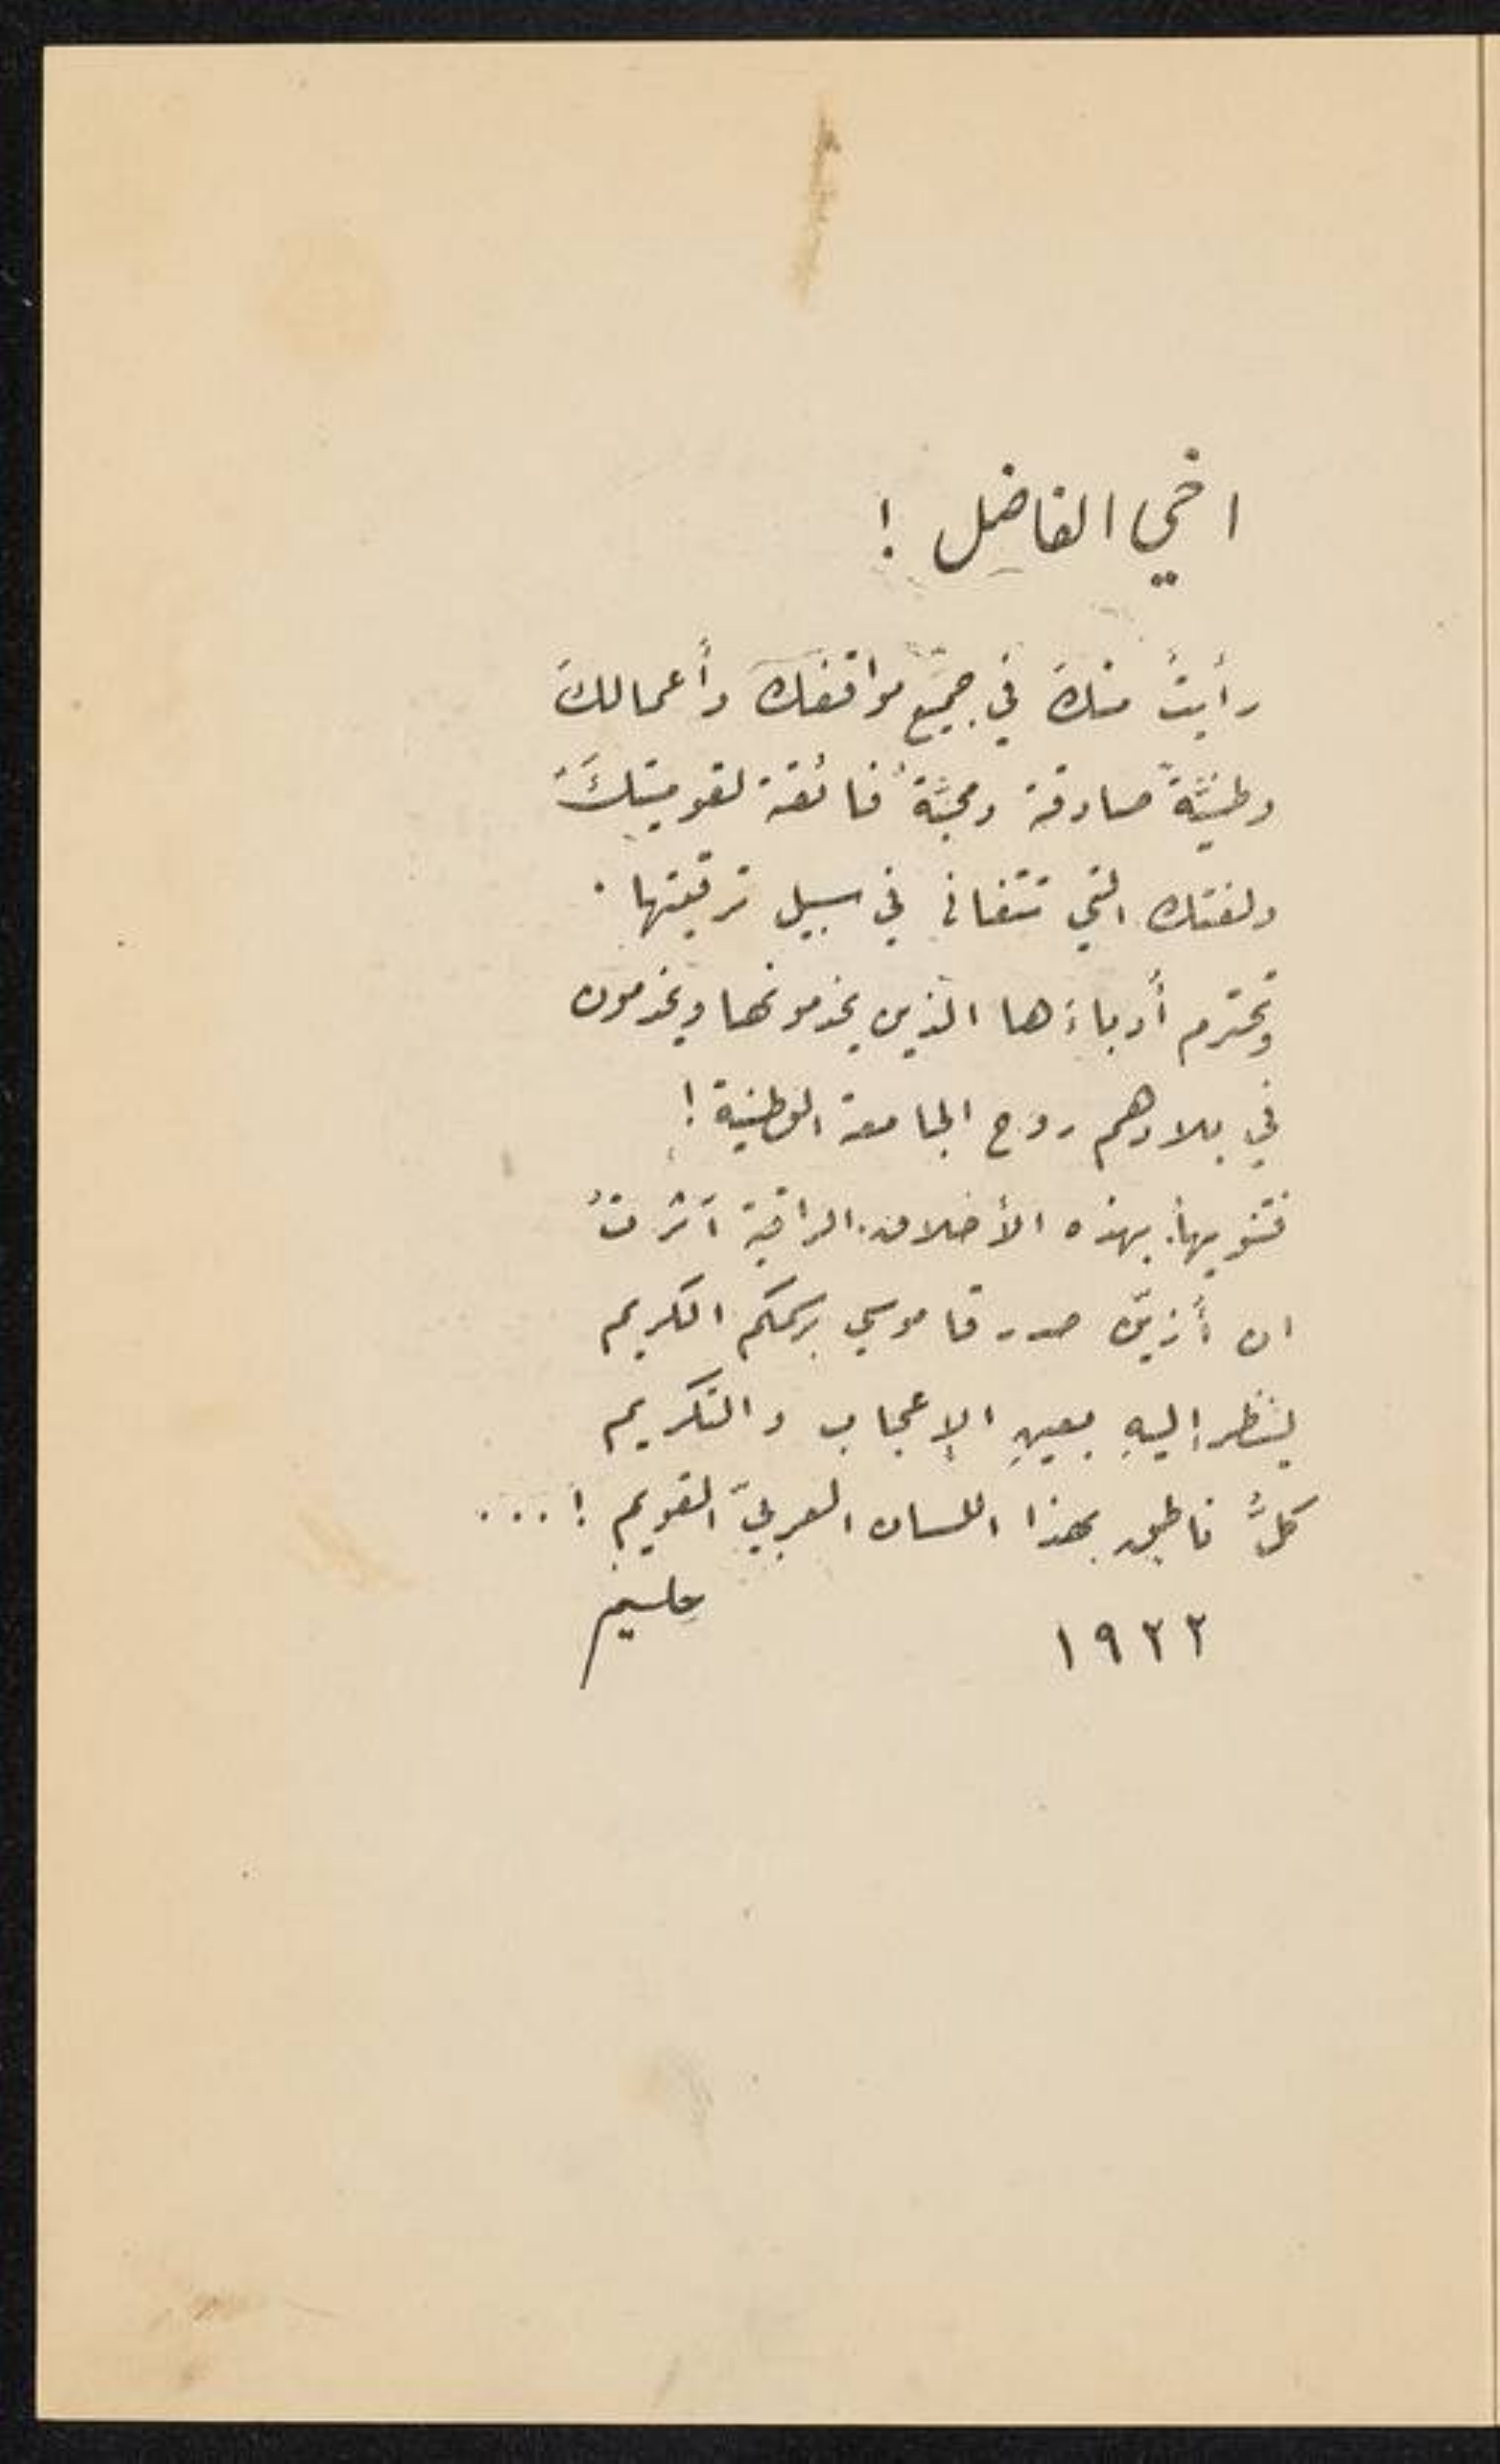 اخي الفاضل !
رأيتُ منكَ في جميع مواقفكَ وأعمالكَ
وطنيَّةً صادقة ومحبَّةً فائقة لقوميتكَ
ولغتك التي تتفانى في سبيل ترقيتها .
وتحترم أدباءَها الذين يخدمونها ويخدمون
في بلادهم روح الجامعة الوطنية !
فتنويهاً بهذه الأخلاق الراقية آثرتُ
ان أُزيّن صدر قاموسي برسمكم الكريم
لينظر إليهِ بعينِ الإعجاب والتكريم
كلُّ ناطق بهذا اللسان العربيّ القويم ! ...
١٩٢٢